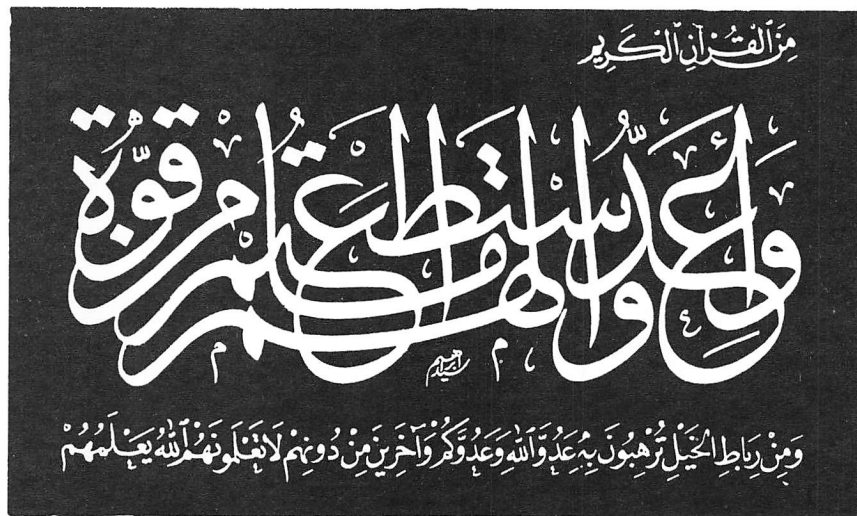 مِنَ ٱلْقُرْآنِ ٱلْكَرِيمِ
وَأَعِدُّوا لَهُمْ مَا اسْتَطَعْتُمْ مِنْ قُوَّةٍ
سيد ابراهيم
وَمِنْ رِبَاطِ الْخَيْلِ تُرْهِبُونَ بِهِ عَدُوَّ ٱللّٰهِ وَعَدُوَّكُمْ وَآخَرِينَ مِنْ دُونِهِمْ لَا تَعْلَمُونَهُمُ ٱللّٰهُ يَعْلَمُهُمْ